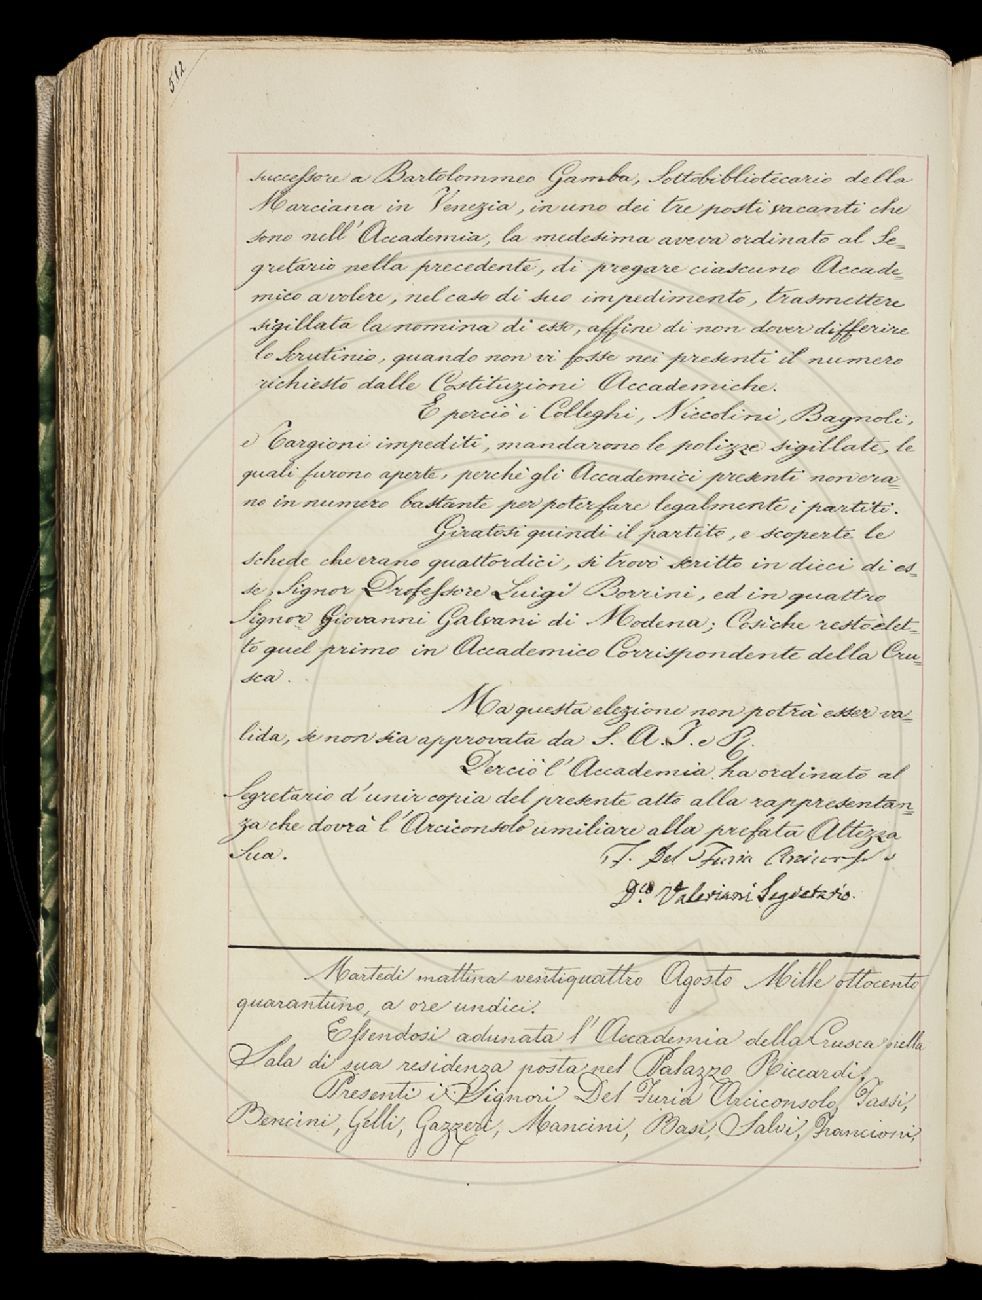 512
successore a Bartolommeo Gamba, Sottobibliotecario della
Marciana in Venezia, in uno dei tre posti vacanti che
sono nell'Accademia, la medesima aveva ordinato al Se=
gretario nella precedente, di pregare ciascuno Accade=
mico a volere, nel caso di suo impedimento, trasmettere
sigillata la nomina di esso, affine di non dover differire
lo Scrutinio, quando non vi fosse nei presenti il numero
richiesto dalle Costituzioni Accademiche.
E perciò i Colleghi, Niccolini, Bagnoli,
e Targioni impediti, mandarono le polizze sigillate, le
quali furono aperte, perchè gli Accademici presenti non era=
no in numero bastante per poter fare legalmente i partiti.
Giratosi quindi il partito, e scoperte le
schede che erano quattordici, si trovò scritto in dieci di es=
se, Signor Professore Luigi Borrini, ed in quattro
Signor Giovanni Galvani di Modena; Cosichè restò elet=
to quel primo in Accademico Corrispondente della Cru=
sca.
Ma questa elezione non potrà esser va=
lida, se non sia approvata da S. A. I. e R.
Perciò l'Accademia ha ordinato al
Segretario d'unir copia del presente atto alla rappresentan=
za che dovrà l'Arciconsolo umiliare alla prefata Altezza
Sua.
F. Del Furia Arciconsolo
D.co Valeriani Segretario.
Martedì mattina ventiquattro Agosto Mille ottocento
quarantuno, a ore undici.
Essendosi adunata l'Accademia della Crusca nella
Sala di sua residenza posta nel Palazzo Riccardi.
Presenti i Signori Del Furia Arciconsolo, Tassi,
Bencini, Gelli, Gazzeri, Mancini, Basi, Salvi, Francioni,